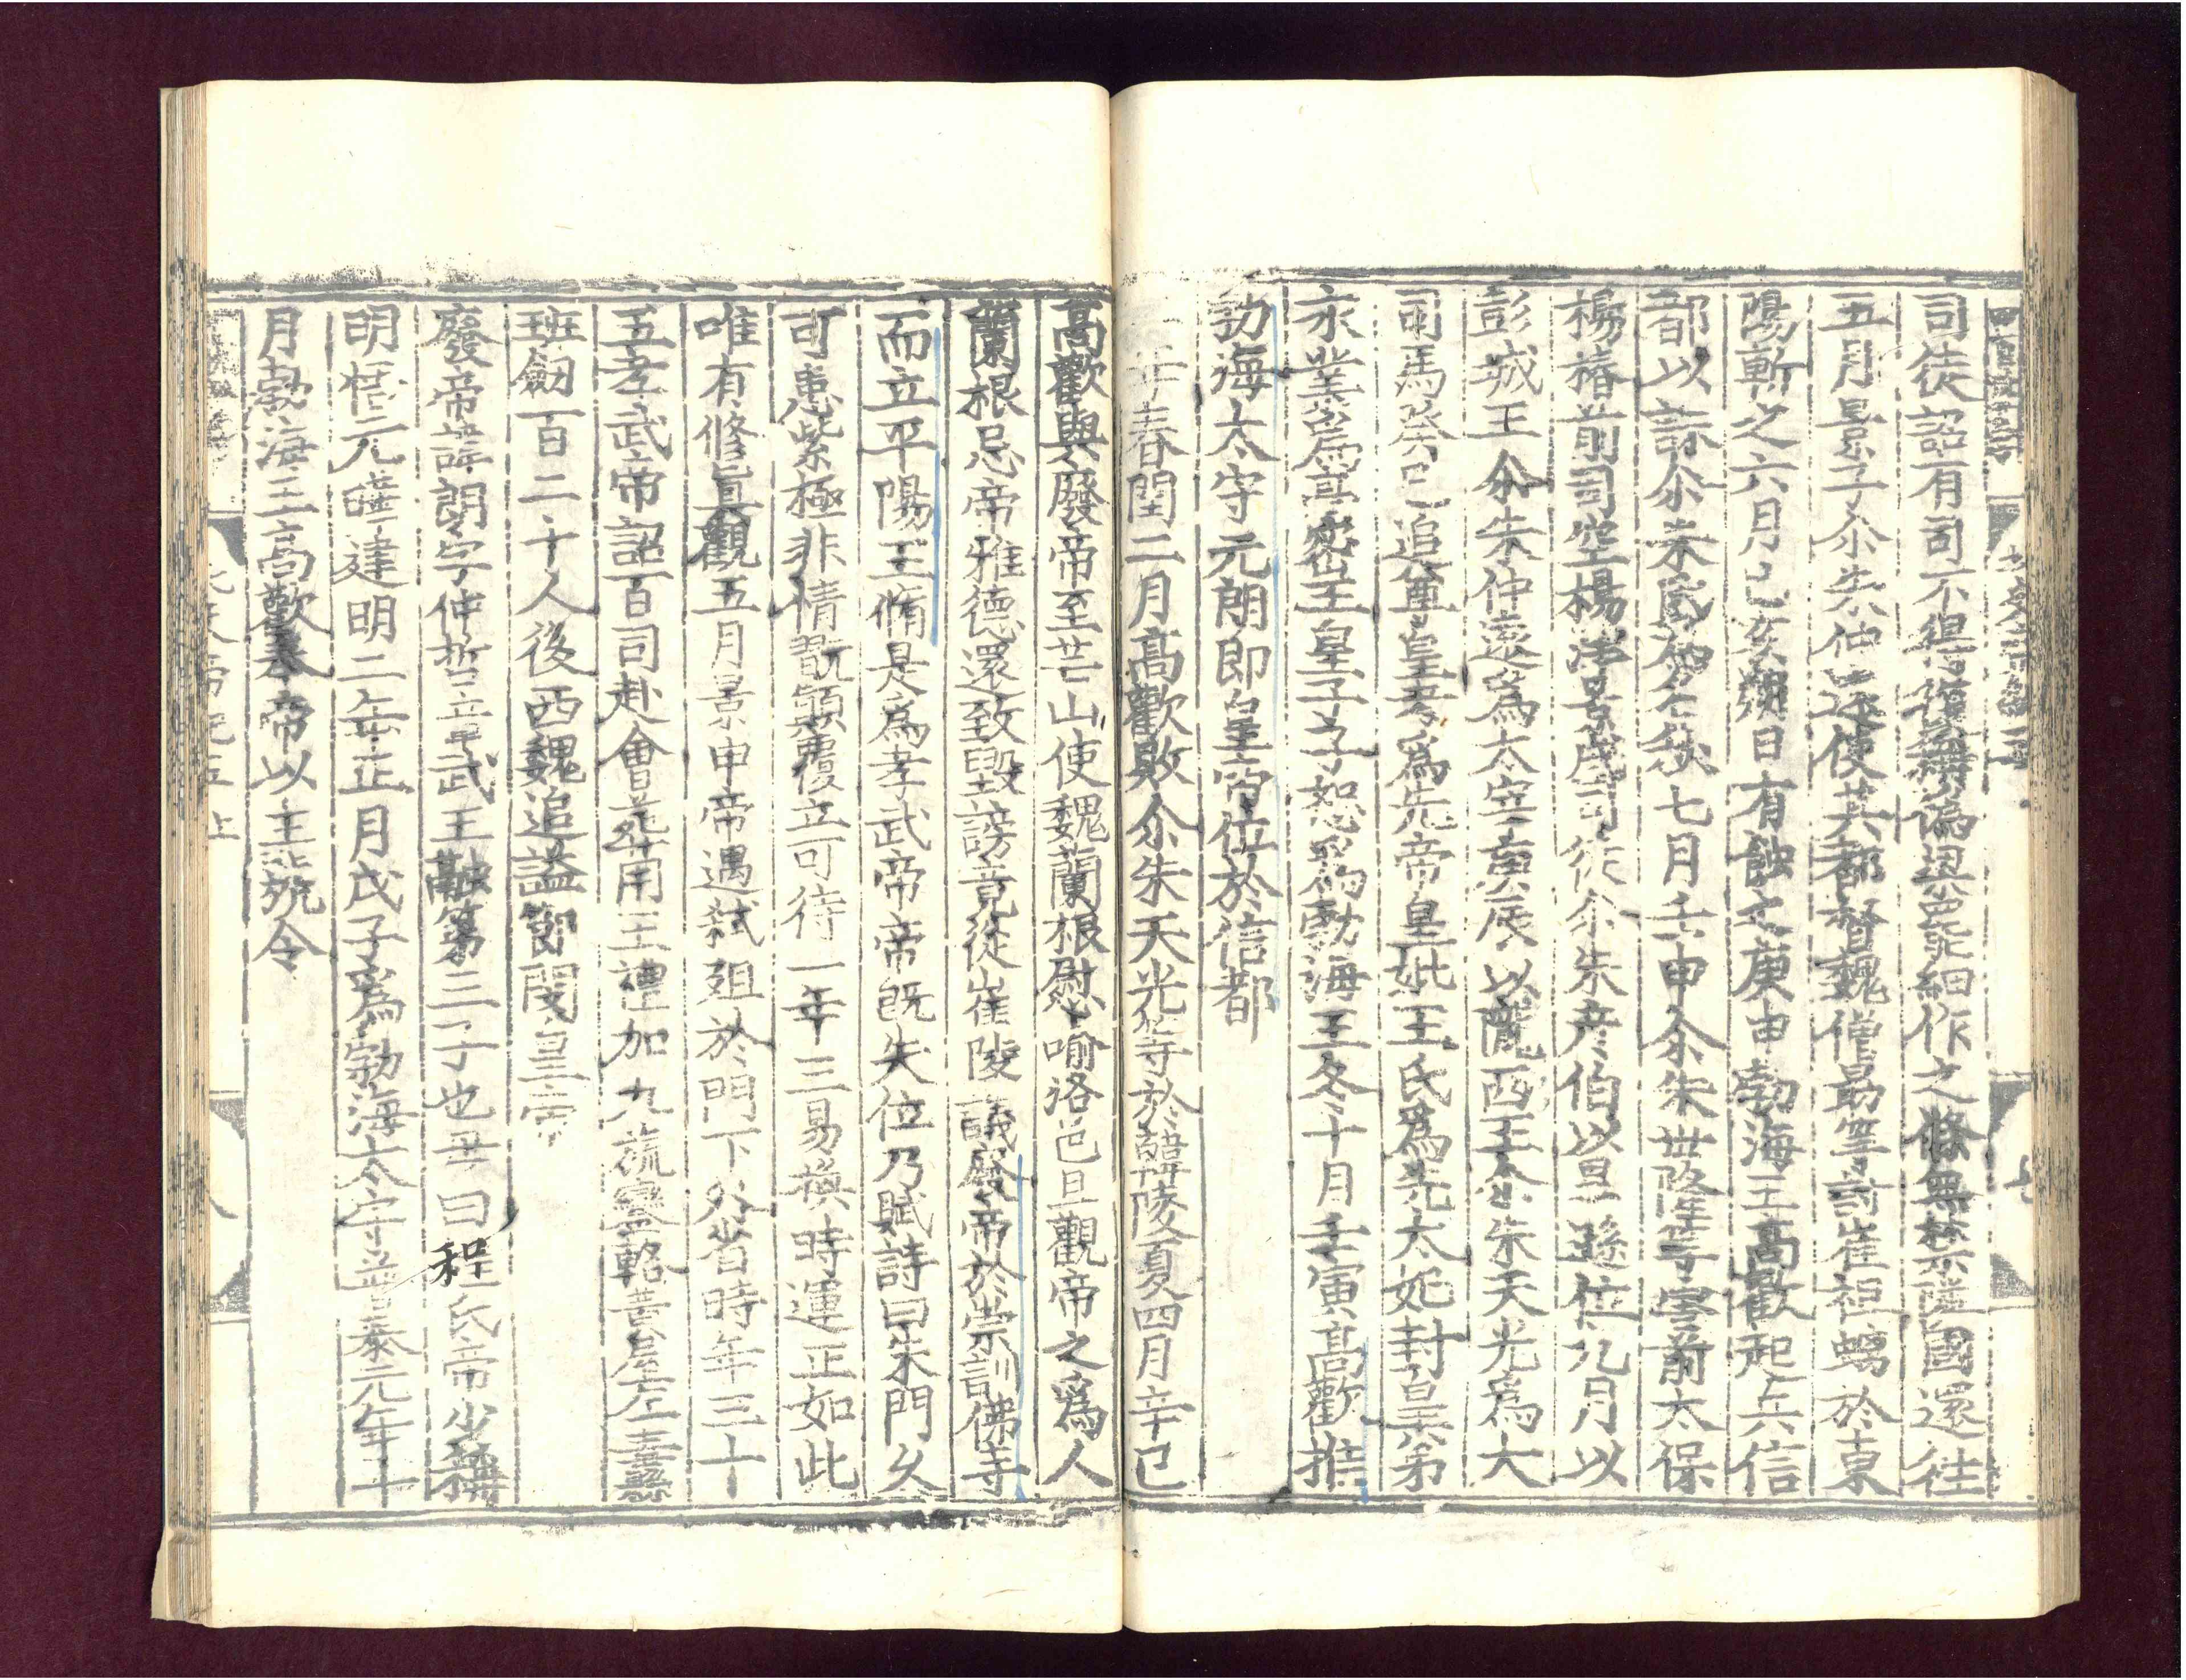 司徒詔有司不得復稱僞梁罷細作之條無禁隣國還往
五月景子尒朱仲遠使其都督魏僧勗等討崔祖螭於東
陽斬之六月己亥朔日有蝕之庚申勃海王高歡起兵信
都以誅尒朱氏爲名秋七月壬申尒朱世隆等害前太保
楊椿前司空楊津景戌司徒尒朱彦伯以旱遜位九月以
彭城王尒朱仲遠爲太宰庚辰以隴西王尒朱天光爲大
司馬癸巳追尊皇考爲先帝皇妣王氏爲先太妃封皇弟
永業爲高密王皇子子恕爲勃海王冬十月壬寅高歡推
勃海太守元朗即皇帝位於信都
二年春閏二月高歡敗尒朱天光等於韓陵夏四月辛巳
高歡與廢帝至芒山使魏蘭根慰喻洛邑且觀帝之爲人
蘭根忌帝雅德還致毀謗竟從崔㥄議廢帝於崇訓佛寺
而立平陽王脩是爲孝武帝帝旣失位乃賦詩曰朱門久
可患紫極非情翫顛覆立可待一年三易換時運正如此
唯有修眞觀五月景申帝遇弒殂於門下外省時年三十
五孝武帝詔百司赴會葬用王禮加九旒鑾輅黃屋左纛
班劒百二十人後西魏追謚節閔皇帝
廢帝諱朗字仲哲章武王融第三子也母曰程氏帝少稱
明悟元曄建明二年正月戊子爲勃海太守普泰元年十
月勃海王高歡奉帝以主號令